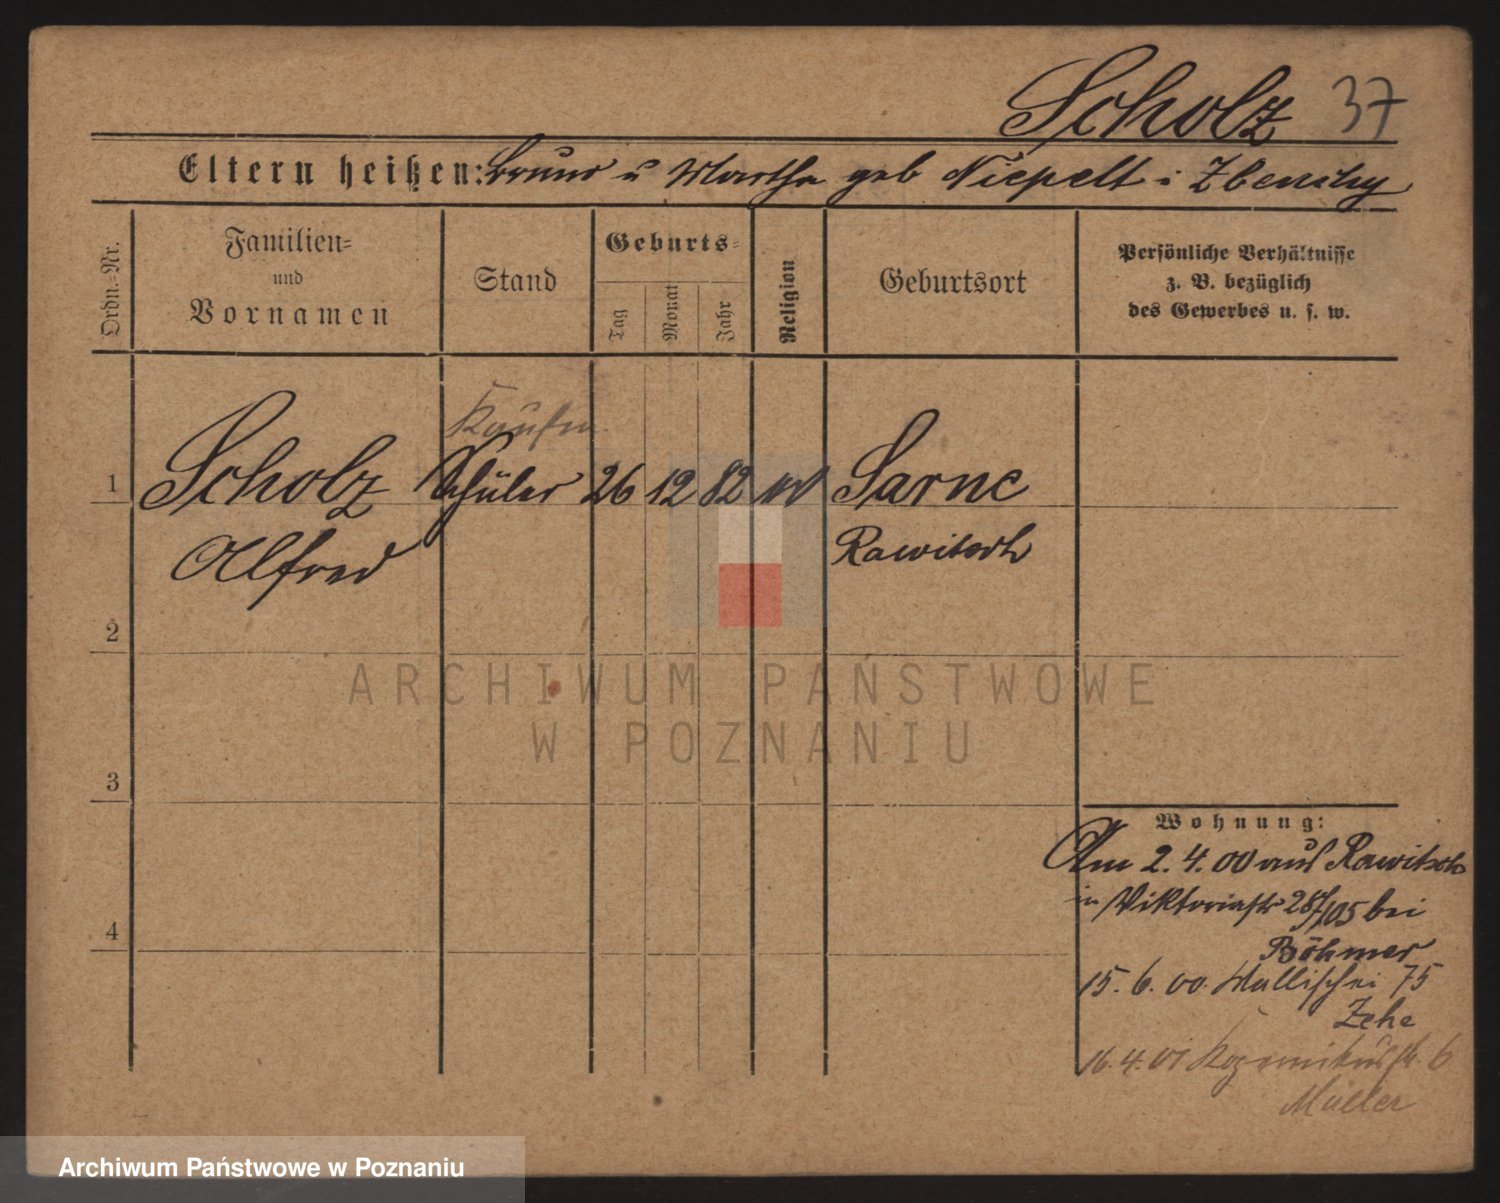 Scholz 37
Eltern heißen: Bruno u Martha geb Niepelt i
Ordn.-Nr.
Familien-
und
Vornamen
Stand
Geburts-
Tag
Monat
Jahr
Religion
Geburtsort
Persönliche Verhältnisse
z. B. bezüglich
des Gewerbes u. s. w.
Kaufm.
1 Scholz Schüler 26 12 82 Sarne
Alfred Rawitsch
2
3
4
Wohnung:
Am 2.4.00 aus Rawitsch
in Viktoriastr bei
Böhmer
15.6.00. Wallischei 75
Zehe
16.4.01 6
Müller
ARCHIWUM PAŃSTWOWE
W POZNANIU
Archiwum Państwowe w Poznaniu